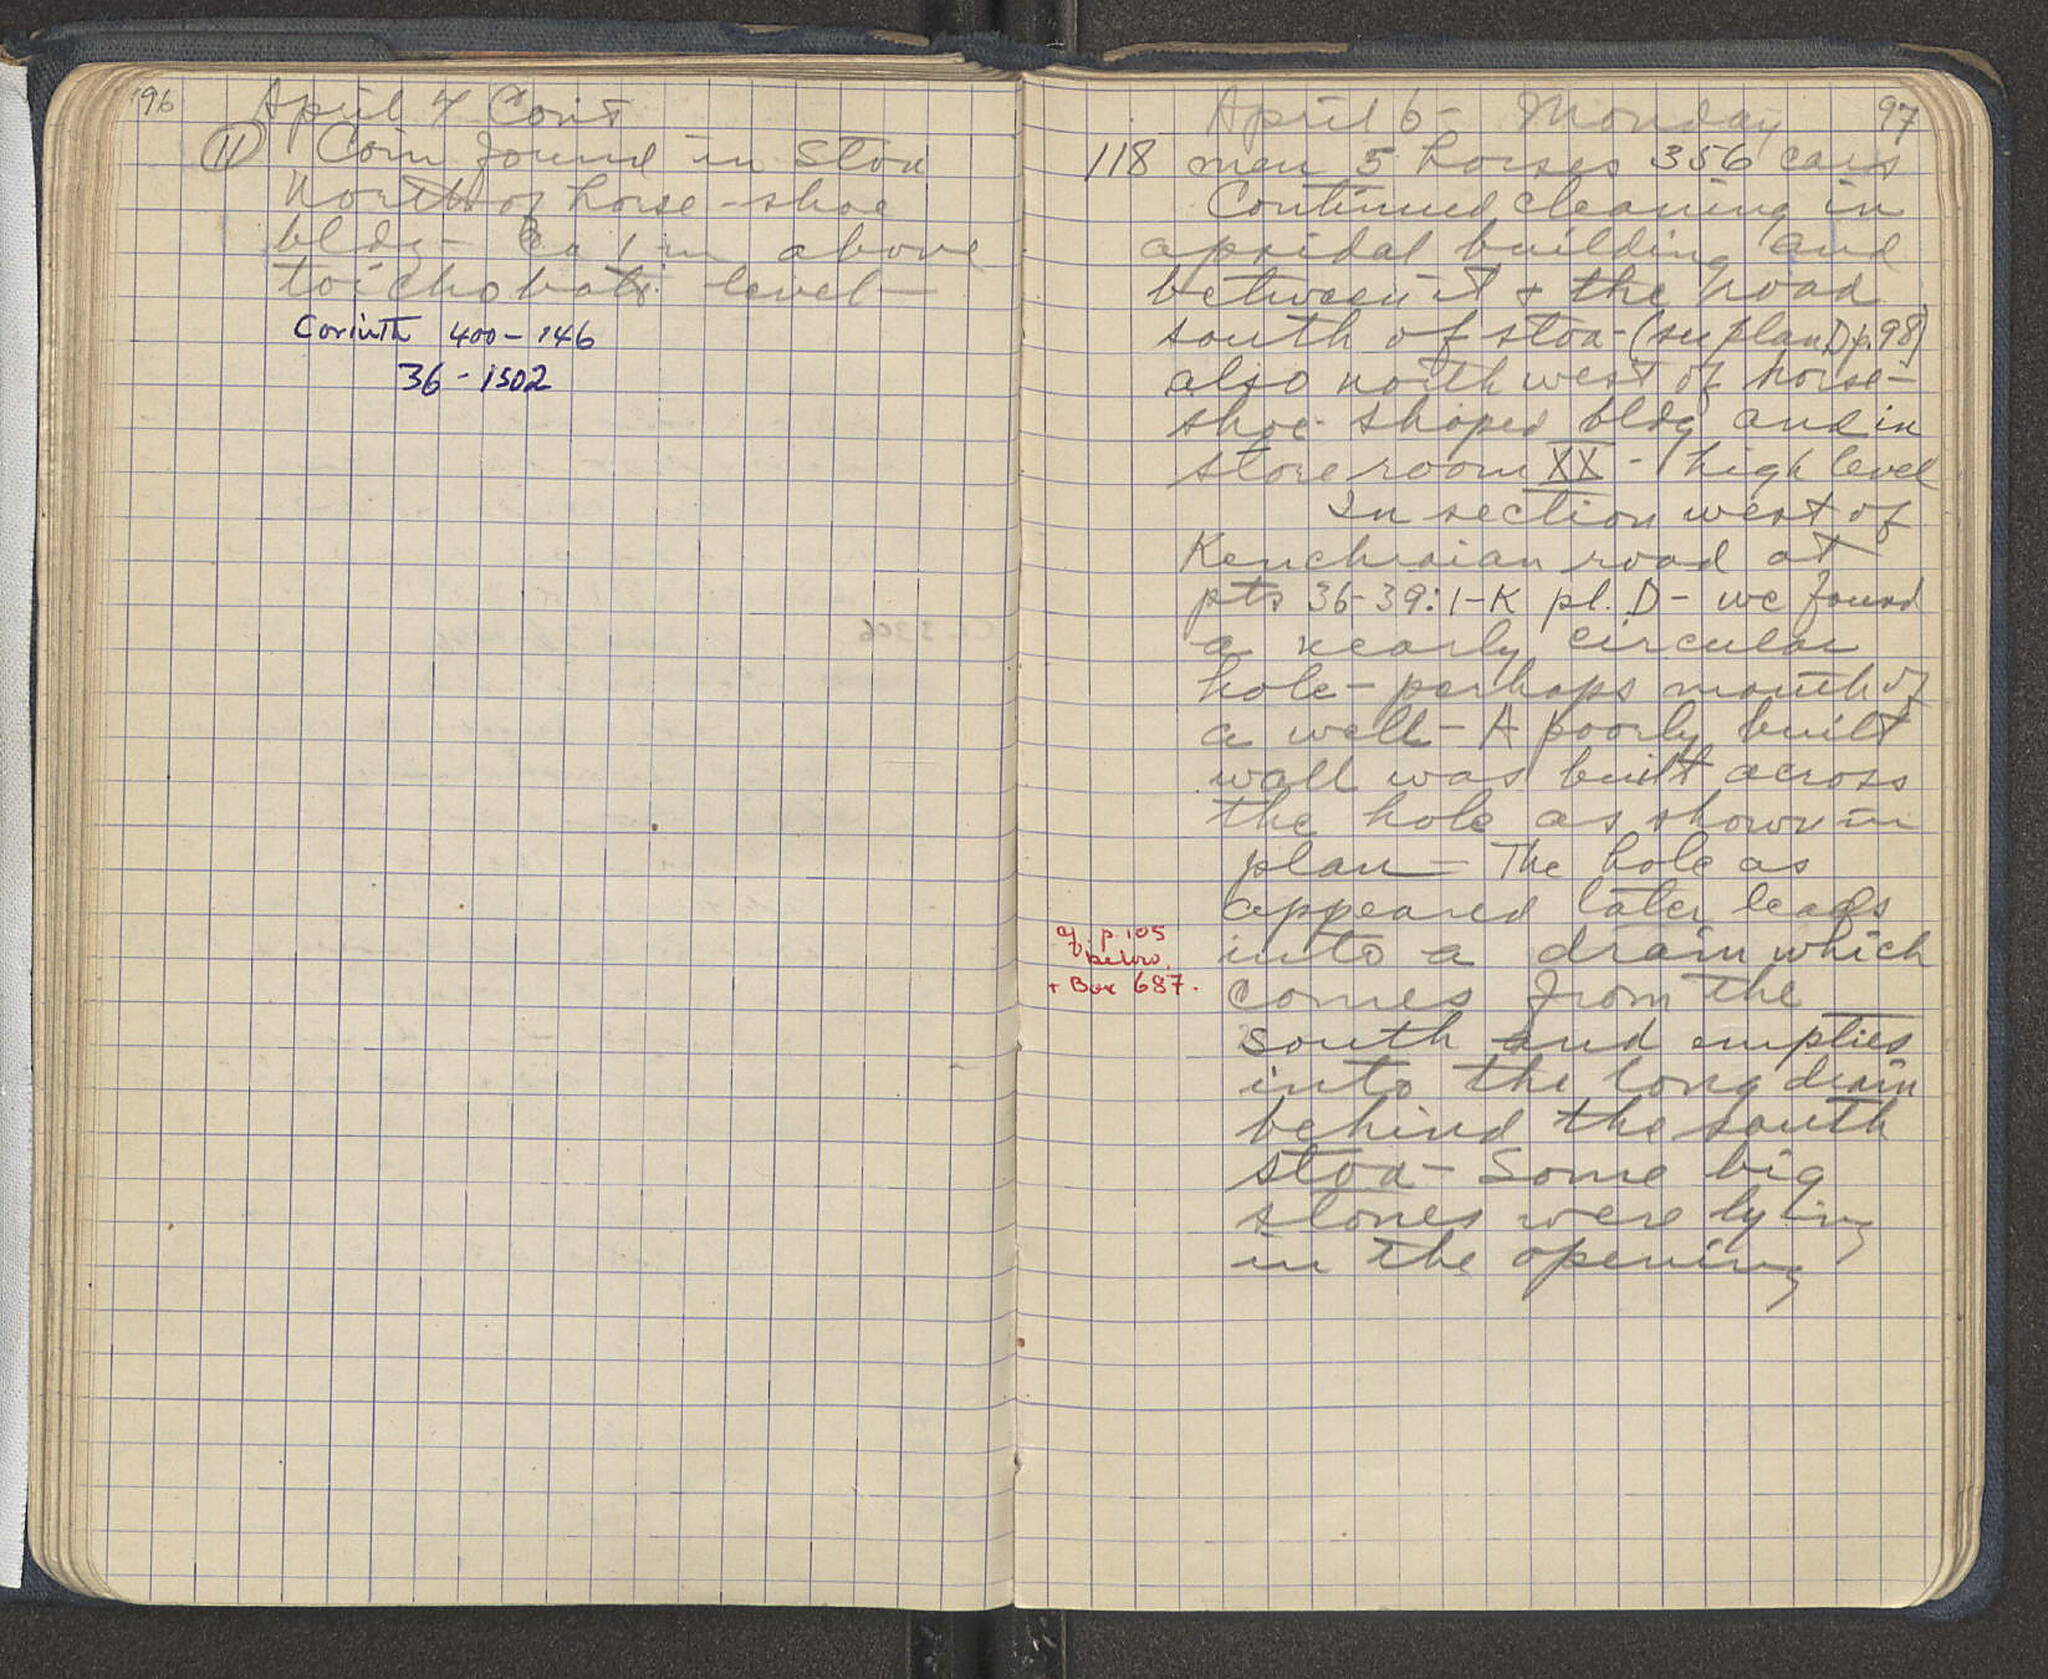 96
April 4 Con't
(11) Coin found in Stoa
North of horse-shoe
bldg - Ca 1 m above
toichobate level -
Corinth 400-146
36-1502
97
April 6 - Monday
118 men 5 horses 356 cars
Continued cleaning in
apsidal building and
between it + the road
south of stoa - (see plan D p.98)
also north west of horse-
shoe shaped bldg and in
store room XX - high level
In section west of
Kenchraian road at
pts 36-39:1-K pl. D - we found
a nearly circular
hole - perhaps mouth of
a well - A poorly built
wall was built across
the hole as shown in
plan - The hole as
appeared later leads
into a drain which
comes from the
south and empties
into the long drain
behind the south
stoa - Some big
stones were lying
in the opening
cf. p. 105
below.
+ Box 687.